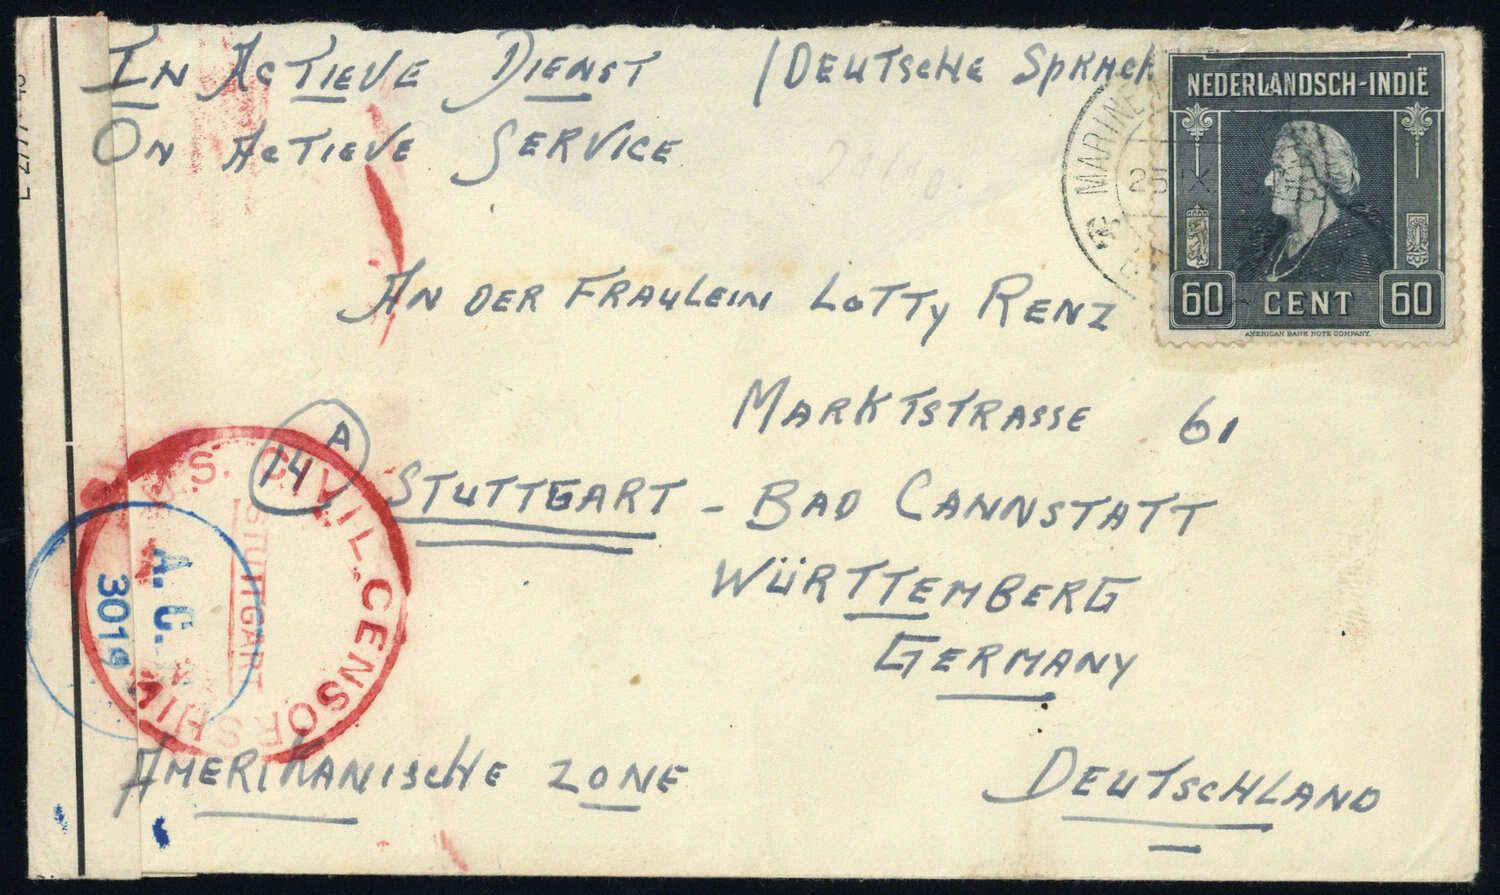 IN ACTIEVE DIENST / DEUTSCHE SPRACH
ON ACTIEVE SERVICE
NEDERLANDSCH-INDIË
60 CENT 60
AMERICAN BANK NOTE COMPANY.
MARINE
AN DER FRAULEIN LOTTY RENZ
MARKTSTRASSE 61
A
14
STUTTGART - BAD CANNSTATT
WÜRTTEMBERG
GERMANY
U.S. CIVIL CENSORSHIP
STUTTGART
A. C.
3019
AMERIKANISCHE ZONE
DEUTSCHLAND